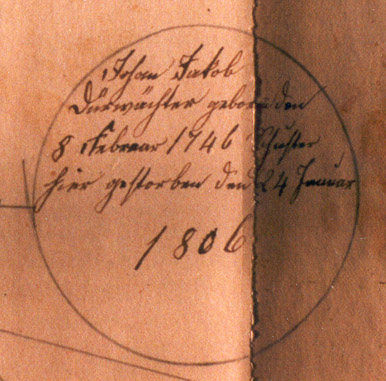 Johan Jakob
Dürwächter geboren den
8 Februar 1746 Schuster
hier gestorben den 24 Januar
1806